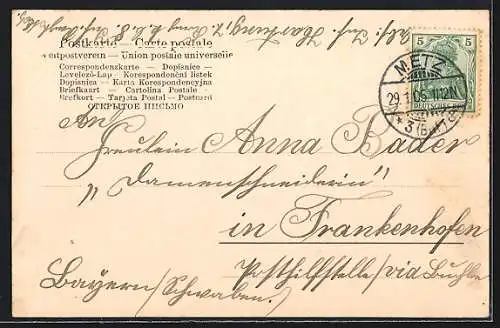 Postkarte — Carte postale
Weltpostverein — Union postale universelle
Correspondenzkarte – Dopisnice –
Levelező-Lap – Korespondenční lístek
Dopisnica – Karta Korespondencyjna
Briefkaart – Cartolina Postale –
Brefkort – Tarjeta Postal – Postcard
ОТКРЫТОЕ ПИСЬМО
5 5
METZ
29.1.05. 11-12N
DEUTSCHES
* 3 (B
An
Fräulein Anna Bader
"Damenschneiderin"
in Frankenhofen
Posthilfstelle/via Buchloe
Bayern/Schwaben.